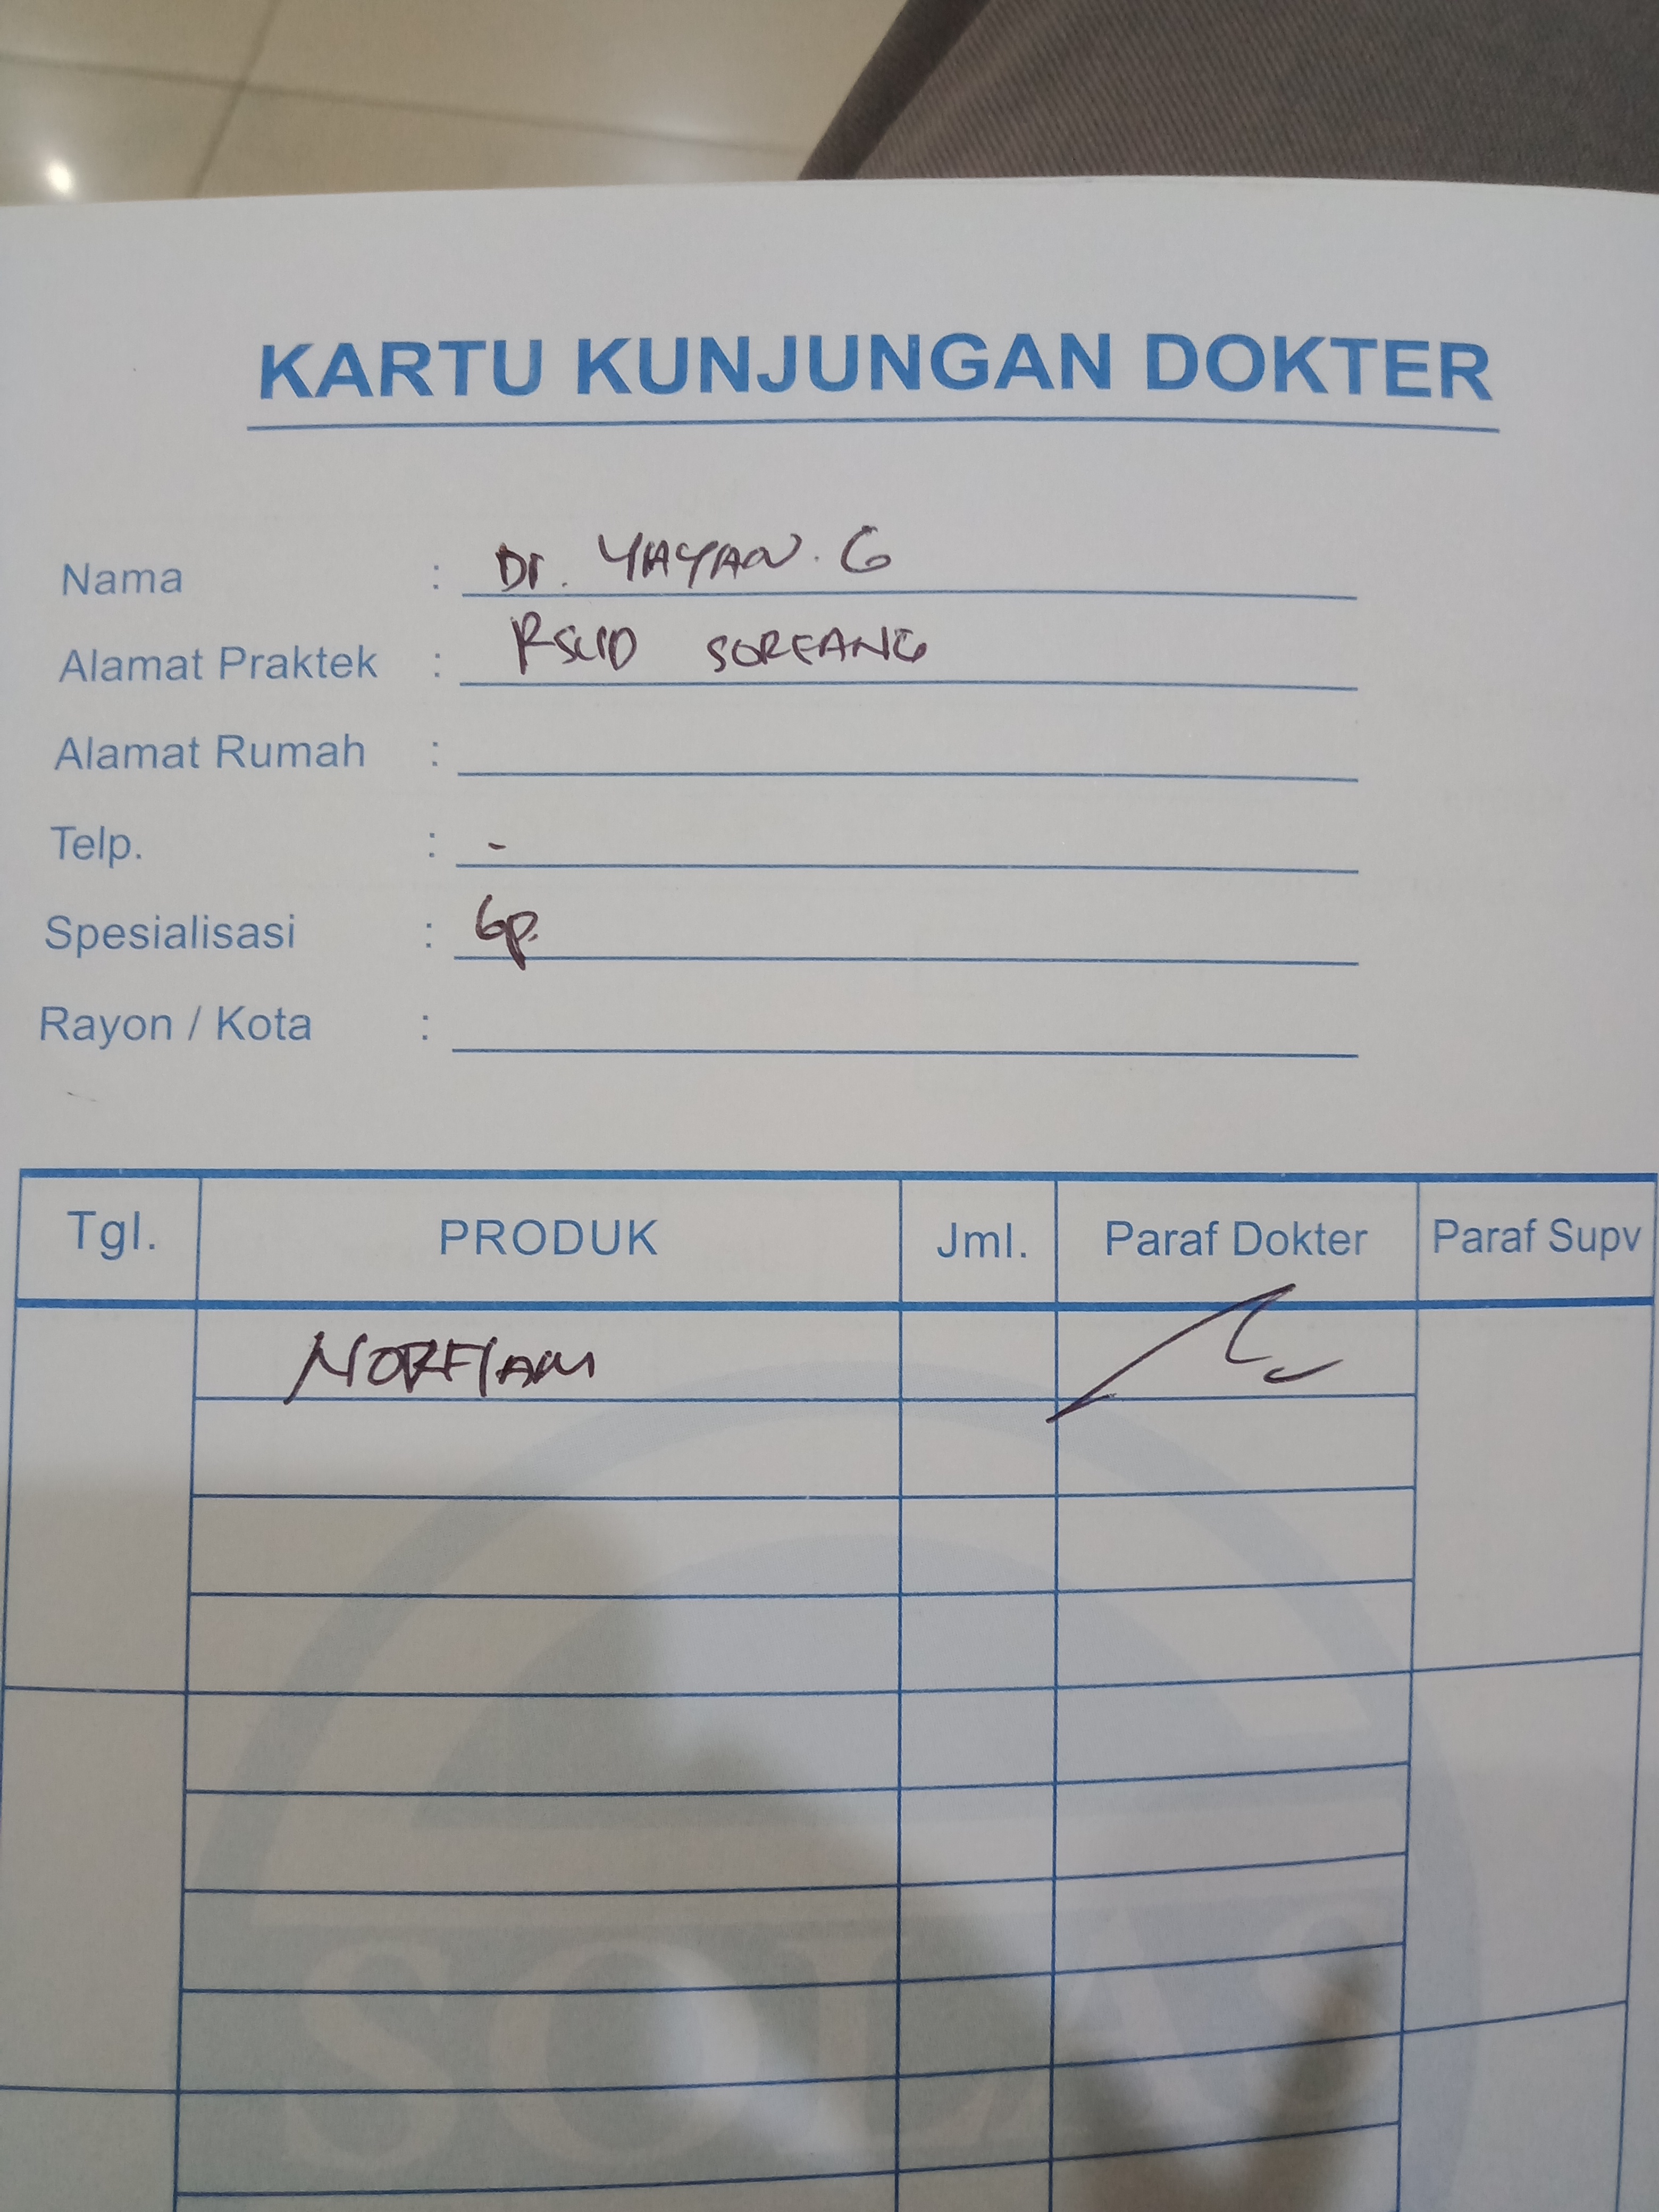 KARTU KUNJUNGAN DOKTER
Nama : Dr. YAYAN. G
Alamat Praktek : RSUD SOREANG
Alamat Rumah :
Telp. : -
Spesialisasi : Gp.
Rayon / Kota :
Tgl. PRODUK Jml. Paraf Dokter Paraf Supv
NORFlAM
SOLAS